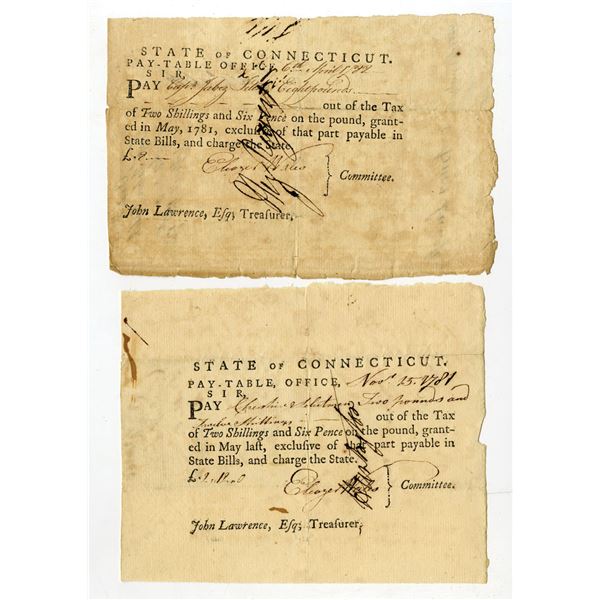 STATE OF CONNECTICUT.
PAY-TABLE OFFICE, 6th April
SIR,
PAY Capt Jabez Eight pounds
out of the Tax
of Two Shillings and Six Pence on the pound, grant-
ed in May, 1781, exclusive of that part payable in
State Bills, and charge the State.
£.8
Eleazer Wales
Committee.
John Lawrence, Esq; Treaſurer,
STATE OF CONNECTICUT.
PAY-TABLE, OFFICE, Novr 23. 1781
SIR,
PAY Two pounds and
twelve Shillings
out of the Tax
of Two Shillings and Six Pence on the pound, grant-
ed in May laſt, exclusive of that part payable in
State Bills, and charge the State.
£.2.12.0
Eleazer Wales
Committee.
John Lawrence, Esq; Treaſurer,